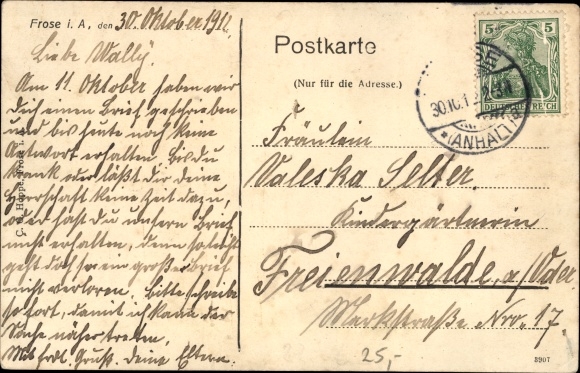 Frose i. A., den 30. Oktober 1912.
Liebe Wally.
Am 11. Oktober haben wir
Dich einen Brief geschrieben
und bis heute noch keine
Antwort erhalten, bis du
krank oder läßt dir deine
Herrschaft keine Zeit dazu,
oder hast du unsern Brief
nicht erhalten, denn so leicht
geht doch so ein großer Brief
nicht verloren. Bitte schreibe
sofort, damit ich kann der
Sache näher treten.
Mit herzl. Gruß. Deine Eltern.
Hoppe, Frose i. A.
Postkarte
(Nur für die Adresse.)
5 5
DEUTSCHES REICH
30.10.1
* (ANHALT)
Fräulein
Valeska Selter.
Kindergärtnerin
Freienwalde a/Oder
Marktstraße Nro. 17.
25,-
3907